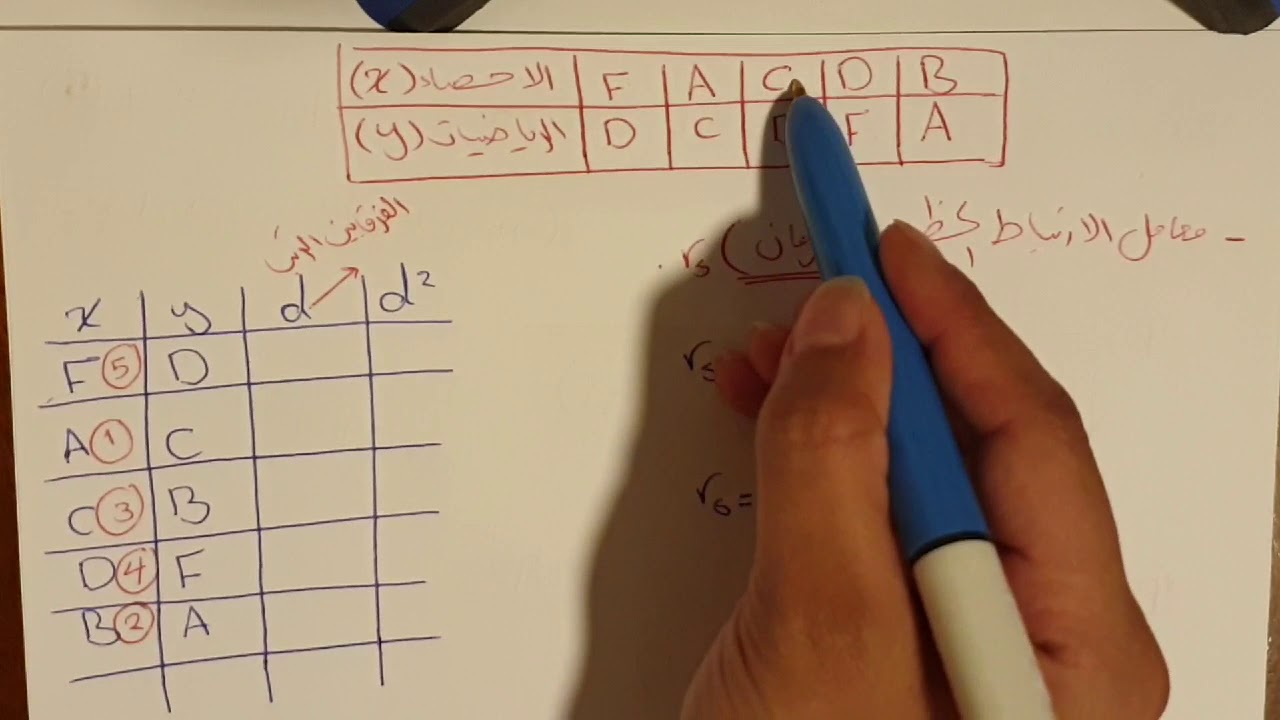 الاحصاء (x) F A C D B
الرياضيات (y) D C F A
الفرق بين الرتب
- معامل الارتباط لخطي rs
x y d d²
F 5 D
A 1 C
C 3 B
D 4 F
B 2 A
rs
rs =